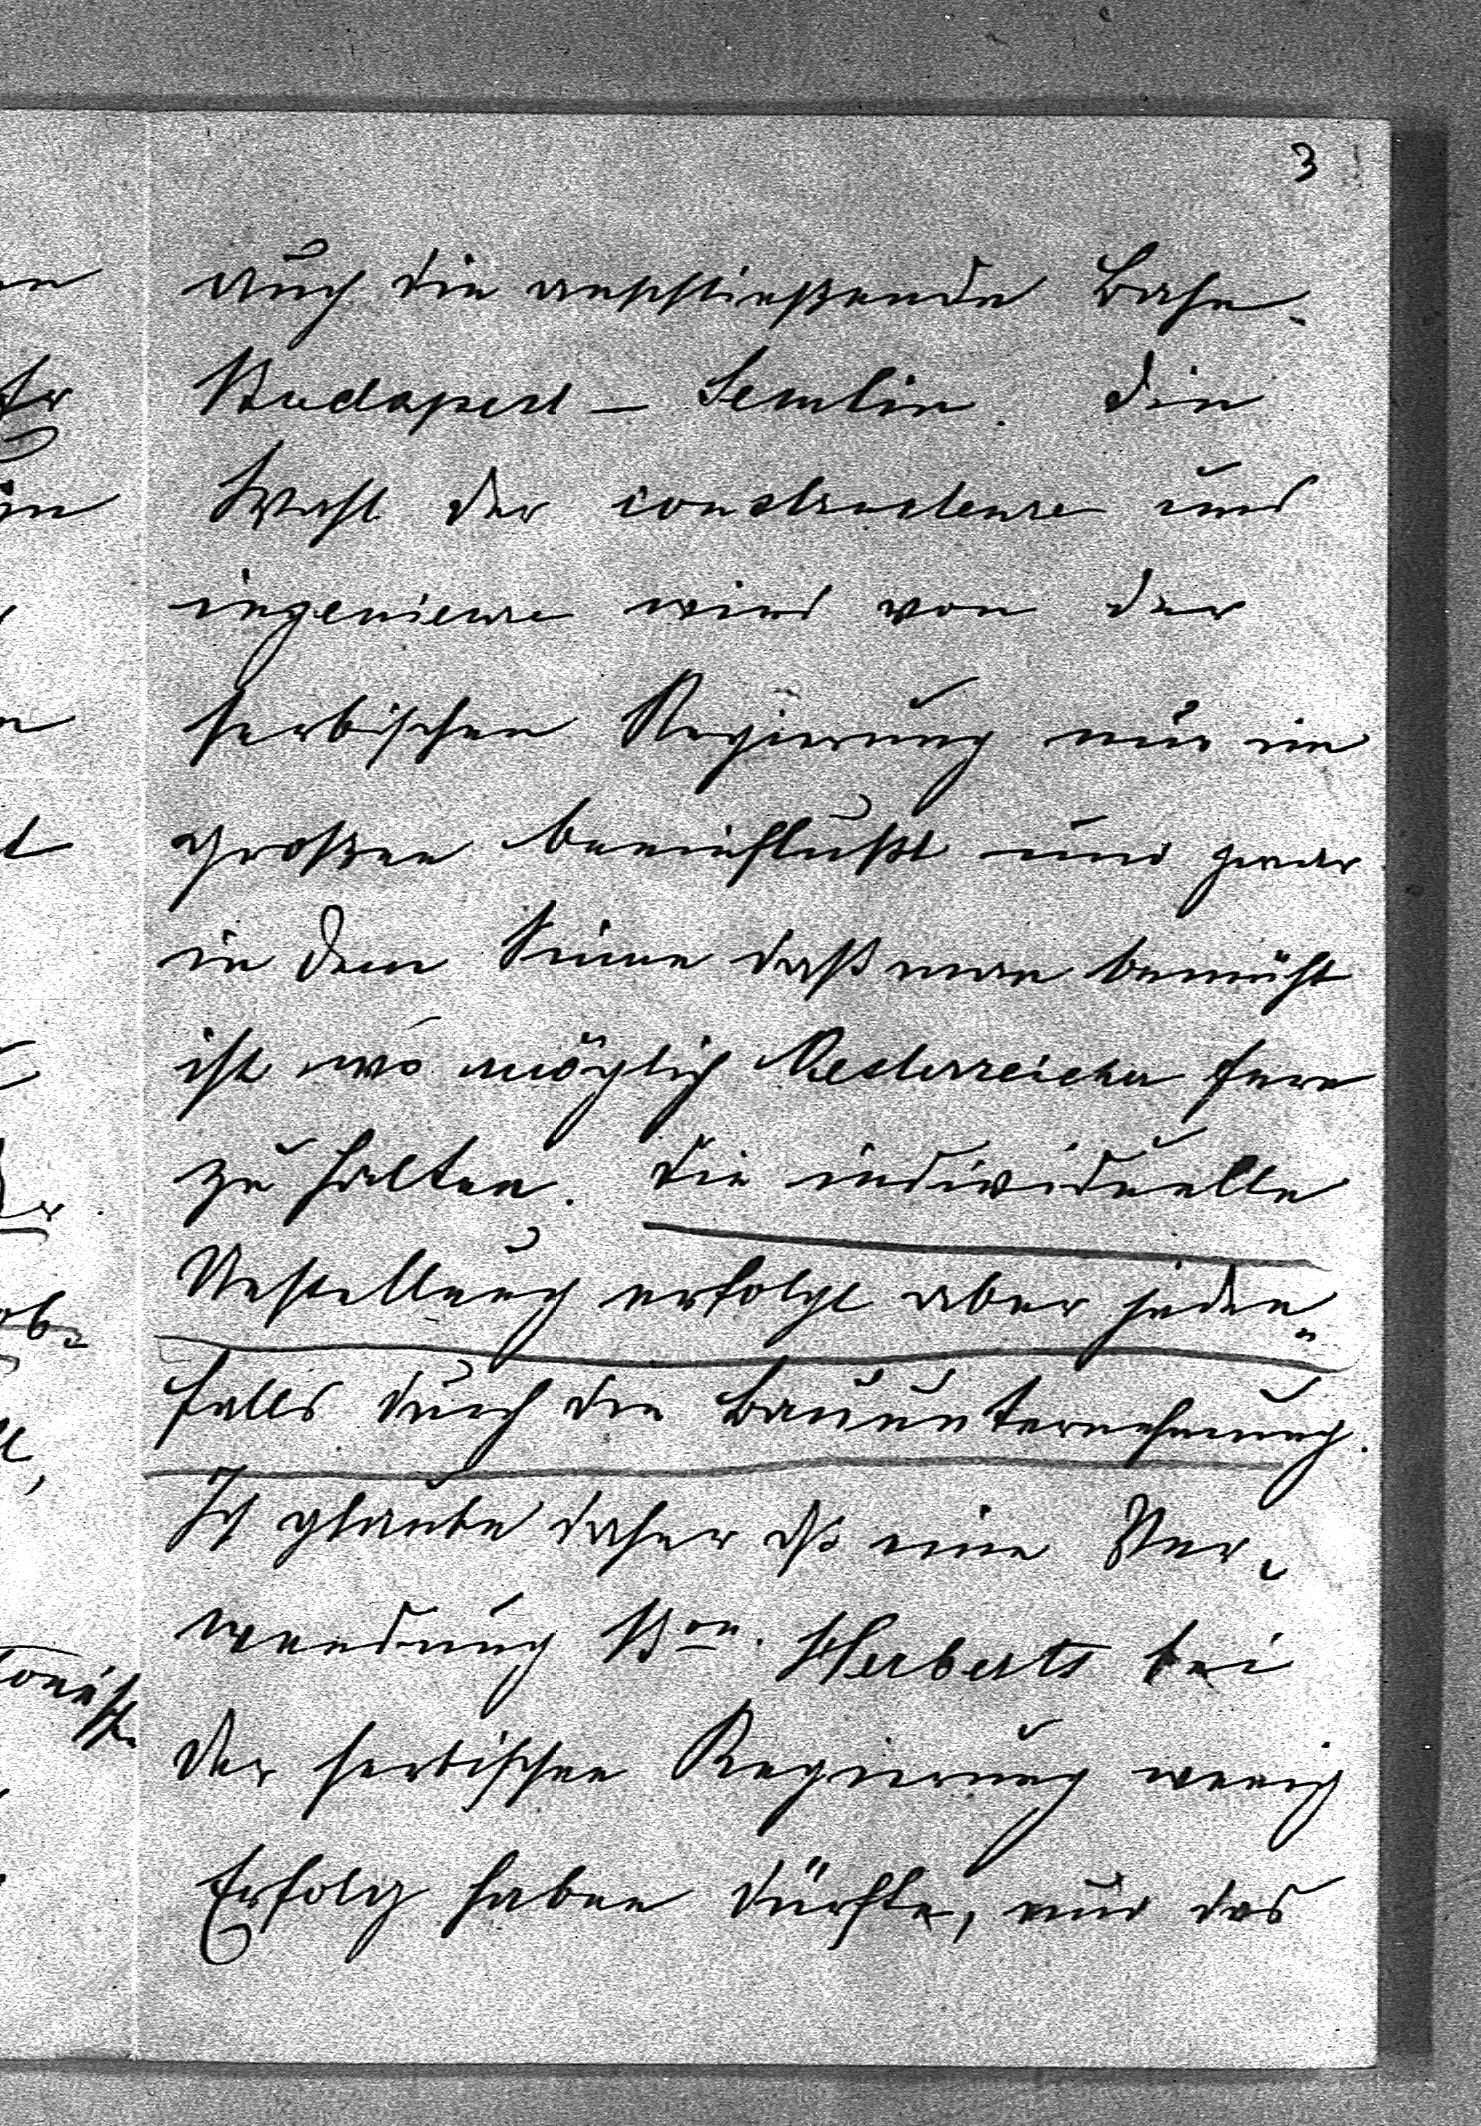 3
auch die anschließende Bahn
Budapest – Semlin. Die
Wahl der constructeure und
ingenieure wird von der
serbischen Regierung nur im
großen beeinflußt und zwar
in dem Sinne daß man bemüht
ist wo möglich Oesterreicher fern
zu halten. Die individuelle
Anstellung erfolgt aber jeden-
falls durch die Bauunternehmung.
Ich glaube daher dß eine Ver-
wendung Bon. Herberts bei
der serbischen Regierung wenig
Erfolg haben dürfte, und das